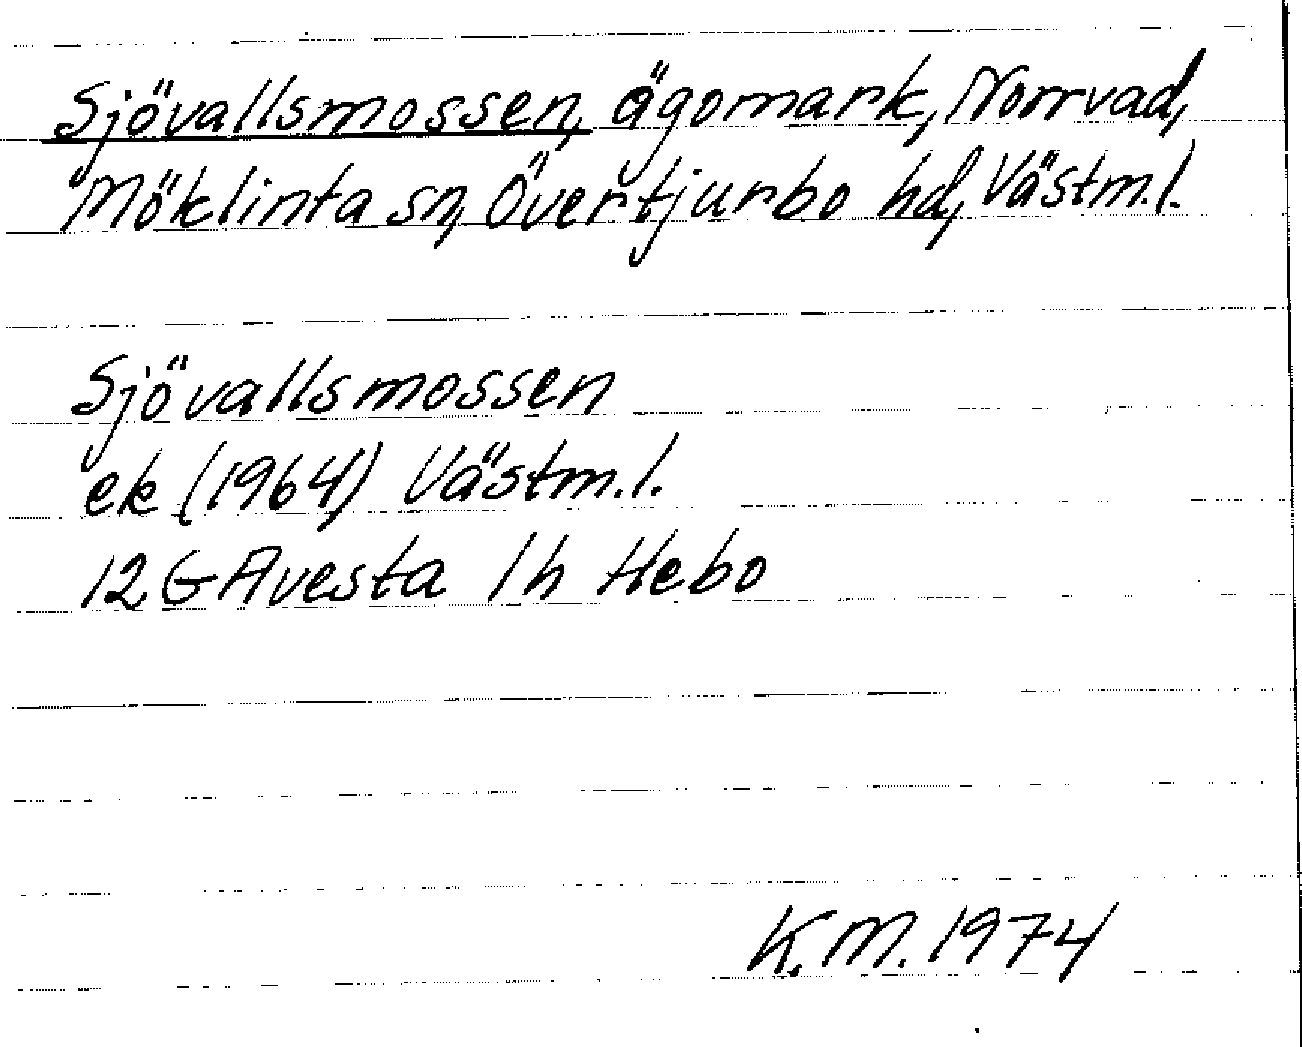 Sjövallsmossen, ägomark, Norrvad,
Möklinta sn, Övertjurbo hd, Västm.l.
Sjövallsmossen
ek (1964) Västm.l.
12 G Avesta 1h Hebo
K.M. 1974